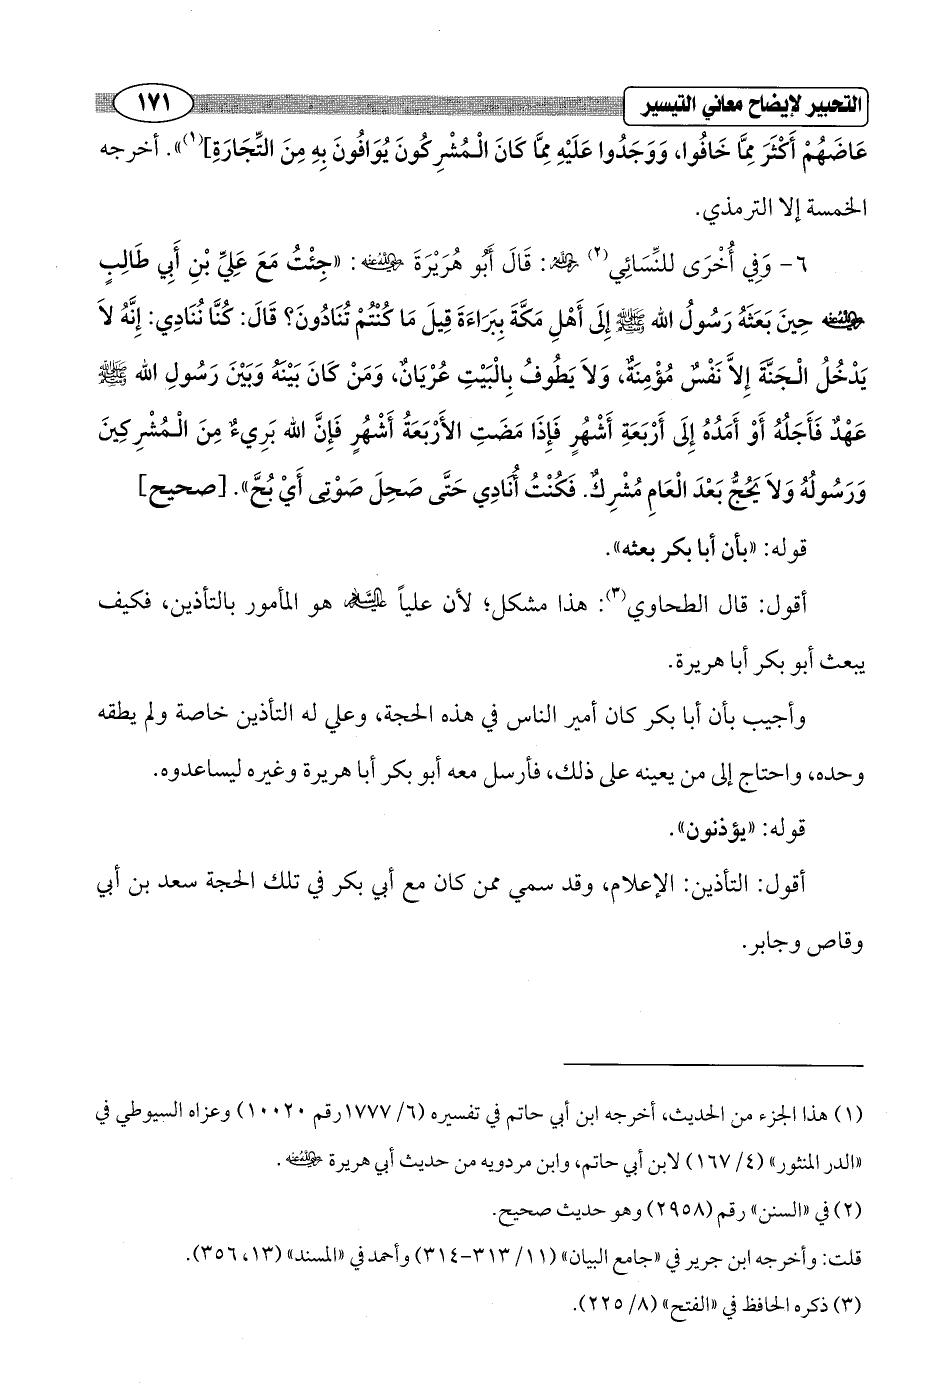 التحبير لإيضاح معاني التيسير ١٧١
عَاضَهُمْ أَكْثَرَ مِمَّا خَافُوا، وَوَجَدُوا عَلَيْهِ مِمَّا كَانَ الْمُشْرِكُونَ يُوَافُونَ بِهِ مِنَ التِّجَارَةِ](١)». أخرجه
الخمسة إلا الترمذي.
٦- وَفِي أُخْرَى للنِّسَائِي(٢) رحمه الله: قَالَ أَبُو هُرَيْرَةَ رضي الله عنه: «جِئْتُ مَعَ عَلِيِّ بْنِ أَبِي طَالِبٍ
رضي الله عنه حِينَ بَعَثَهُ رَسُولُ الله ﷺ إِلَى أَهْلِ مَكَّةَ بِبَرَاءَةَ قِيلَ مَا كُنْتُمْ تُنَادُونَ؟ قَالَ: كُنَّا نُنَادِي: إِنَّهُ لاَ
يَدْخُلُ الْجَنَّةَ إِلاَّ نَفْسٌ مُؤْمِنَةٌ، وَلاَ يَطُوفُ بِالْبَيْتِ عُرْيَانٌ، وَمَنْ كَانَ بَيْنَهُ وَبَيْنَ رَسُولِ الله ﷺ
عَهْدٌ فَأَجَلُهُ أَوْ أَمَدُهُ إِلَى أَرْبَعَةِ أَشْهُرٍ فَإِذَا مَضَتِ الأَرْبَعَةُ أَشْهُرٍ فَإِنَّ الله بَرِيءٌ مِنَ الْمُشْرِكِينَ
وَرَسُولُهُ وَلاَ يَحُجُّ بَعْدَ الْعَامِ مُشْرِكٌ. فَكُنْتُ أُنَادِي حَتَّى صَحِلَ صَوْتِى أَيْ بُحَّ». [صحيح]
قوله: «بأن أبا بكر بعثه».
أقول: قال الطحاوي(٣): هذا مشكل؛ لأن علياً عليه السلام هو المأمور بالتأذين، فكيف
يبعث أبو بكر أبا هريرة.
وأجيب بأن أبا بكر كان أمير الناس في هذه الحجة، وعلي له التأذين خاصة ولم يطقه
وحده، واحتاج إلى من يعينه على ذلك، فأرسل معه أبو بكر أبا هريرة وغيره ليساعدوه.
قوله: «يؤذنون».
أقول: التأذين: الإعلام، وقد سمي ممن كان مع أبي بكر في تلك الحجة سعد بن أبي
وقاص وجابر.
(١) هذا الجزء من الحديث، أخرجه ابن أبي حاتم في تفسيره (٦/ ١٧٧٧رقم ١٠٠٢٠) وعزاه السيوطي في
«الدر المنثور» (٤/ ١٦٧) لابن أبي حاتم، وابن مردويه من حديث أبي هريرة رضي الله عنه.
(٢) في «السنن» رقم (٢٩٥٨) وهو حديث صحيح.
قلت: وأخرجه ابن جرير في «جامع البيان» (١١/ ٣١٣-٣١٤) وأحمد في «المسند» (١٣، ٣٥٦).
(٣) ذكره الحافظ في «الفتح» (٨/ ٢٢٥).